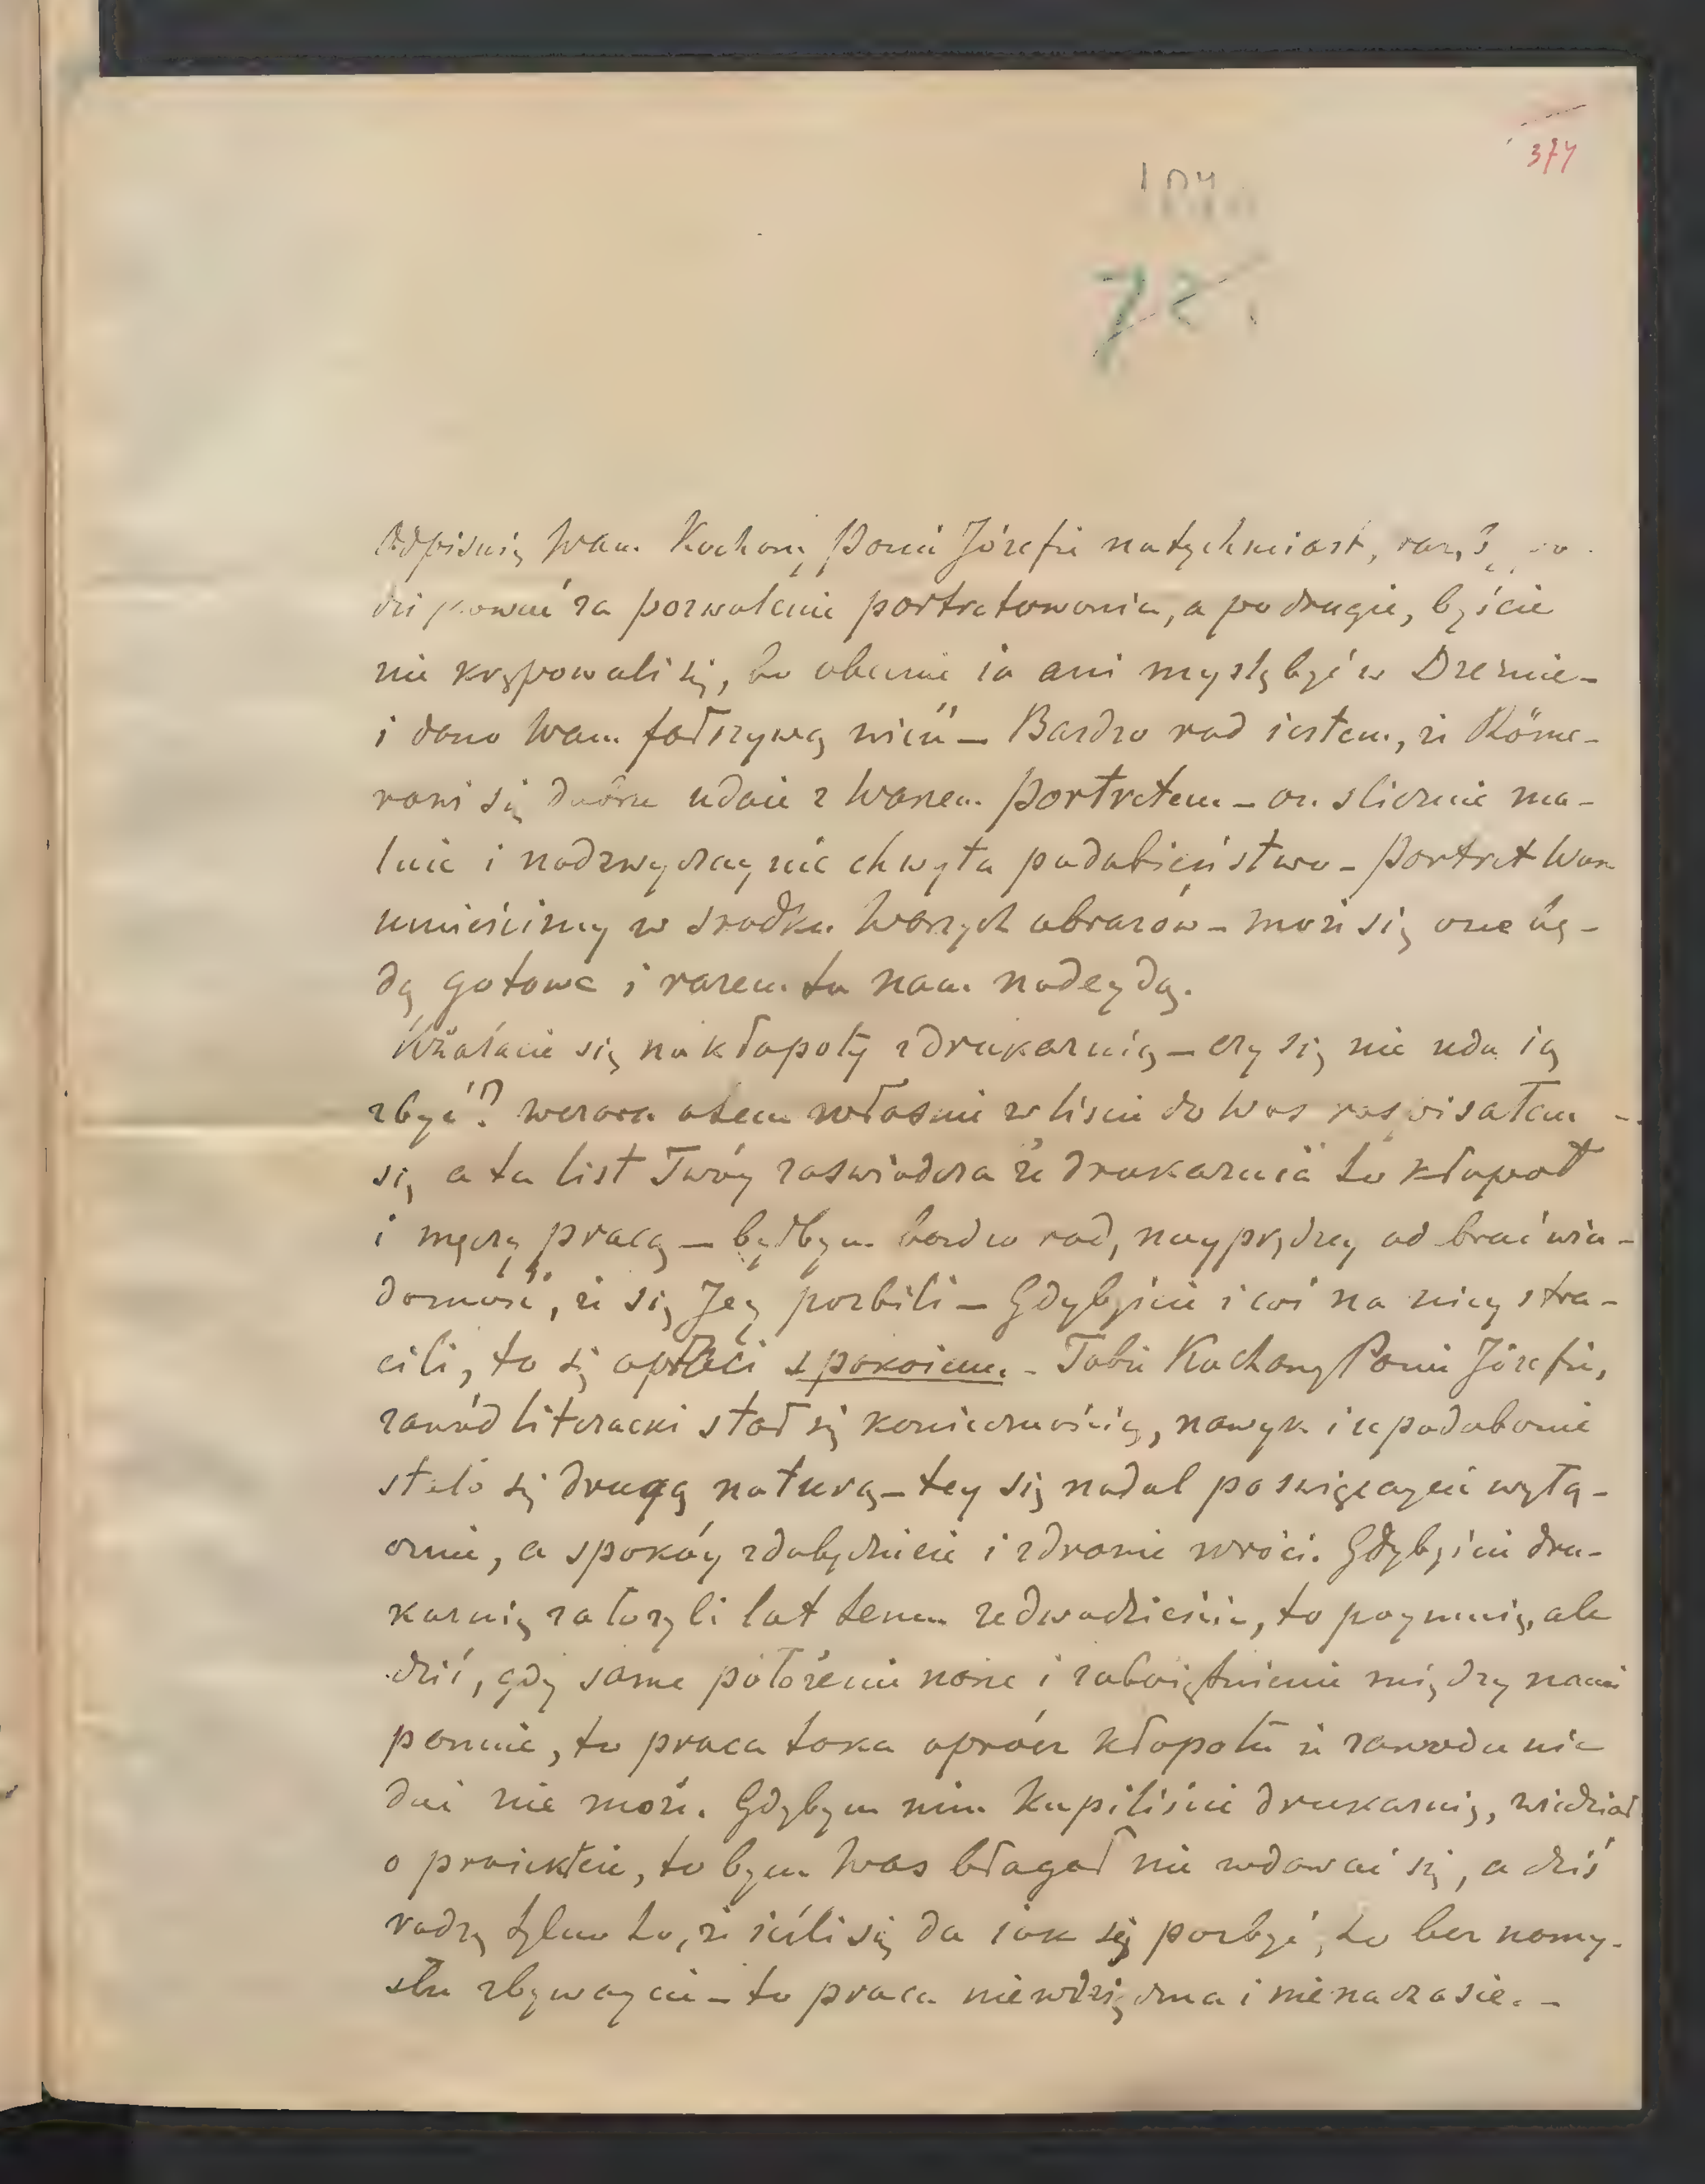 374
Odpisuię Wam Kochany Panie Józefie natychmiast, raz,
za pozwolenie portretowania, a po drugie, byście
nie krępowali się, bo obecnie ia ani myślę być w Dreznie –
i dano Wam fałszywą wieść – Bardzo rad iestem, że Röme-
rowi się dobrze udaie z Waszem portretem – on slicznie ma-
luie i nadzwyczaynie chwyta podobieństwo – Portret Wasz
umieścimy w srodku Waszych obrazów – może się one bę-
dą gotowe i razem tu nam nadeydą.
Użalacie się na kłopoty z drukarnią – czy się nie uda ią
zbyć? wczora otem własnie w liscie do Was rospisałem –
się a tu list Twóy zaswiadcza że drukarnia to kłopot
i męczy pracą – byłbym bardzo rad, nayprędzey odbrać wia-
domość, że się Jey pozbili – Gdybyście i coś na niey stra-
cili, to się opłaci spokoiem. – Tobie Kochany Panie Józefie,
zawód literacki stał się koniecznością, nawyk i upodobanie
stało się drugą naturą – tey się nadal poswięcaycie wyłą-
cznie, a spokóy zdobędziecie i zdrowie wróci. Gdybyście dru-
karnię założyli lat temu zedwadzieścia, to poymuię, ale
dziś, gdy same położenie nasze i zoboiętnienie między nami
panuie, to praca taka oprócz kłopotu i zawodu nic
dać nie może. Gdybym nim kupiliście drukarnię, wiedział
o proiekcie, to bym Was błagał nie wdawać się, a dziś
radzę tylko to, że ieśli się da iak się pozbyć, to bez namy-
słu zbywaycie – to praca niewdzięczna i nienaczasie. –